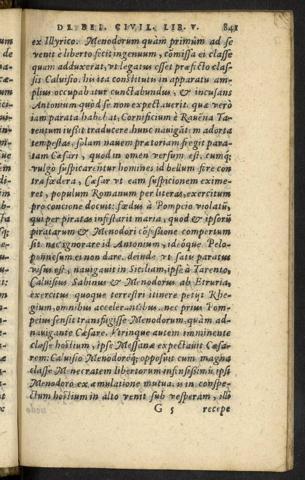 DE BEL. CIVIL. LIB. V. 841
ex Illyrico. Menodorum quàm primùm ad se
venit è liberto fecit ingenuum, cōmissa ei classe
quam adduxerat, vt legatus esset præfecto clas-
sis Caluisio. his ita constitutis in apparatu am-
plius occupabatur cunctabundus, & incusans
Antonium quòd se non expectauerit. quæ verò
iam parata habebat, Cornificium è Rauēna Ta-
rentum iussit traducere. hunc nauigāt m adorta
tempestas, solam nauem prætoriam fregit para-
tam Cæsari, quod in omen versum est. cumq;
vulgò suspicarentur homines id bellum fieri con
tra fœdera, Cæsar vt eam suspicionem exime-
ret, populum Romanum per literas, exercitum
pro concione docuit: fœdus à Pompeio violatū,
qui per piratas infestarit maria, quod & ipsorū
piratarum & Menodori cōfessione compertum
sit: nec ignorare id Antonium, ideóque Pelo-
ponnesum ei non dare. deinde vt satis paratus
visus est, nauigauit in Siciliam, ipse à Tarento,
Caluisius Sabinus & Menodorus ab Etruria,
exercitus quoque terrestri itinere petijt Rhe-
gium, omnibus accelerantibus. nec prius Pom-
peius sensit transfugisse Menodorum, quàm ad-
nauigante Cæsare. Vtrinque autem imminente
classe hostium, ipse Messanæ expectauit Cæsa-
rem: Caluisio Menodoroq; opposuit cum magna
classe Menecratem libertorum infensissimū. ipsi
Menodoro ex æmulatione mutua. is in conspe-
ctum hostium in alto venit sub vesperam, illis
G 5 recepe